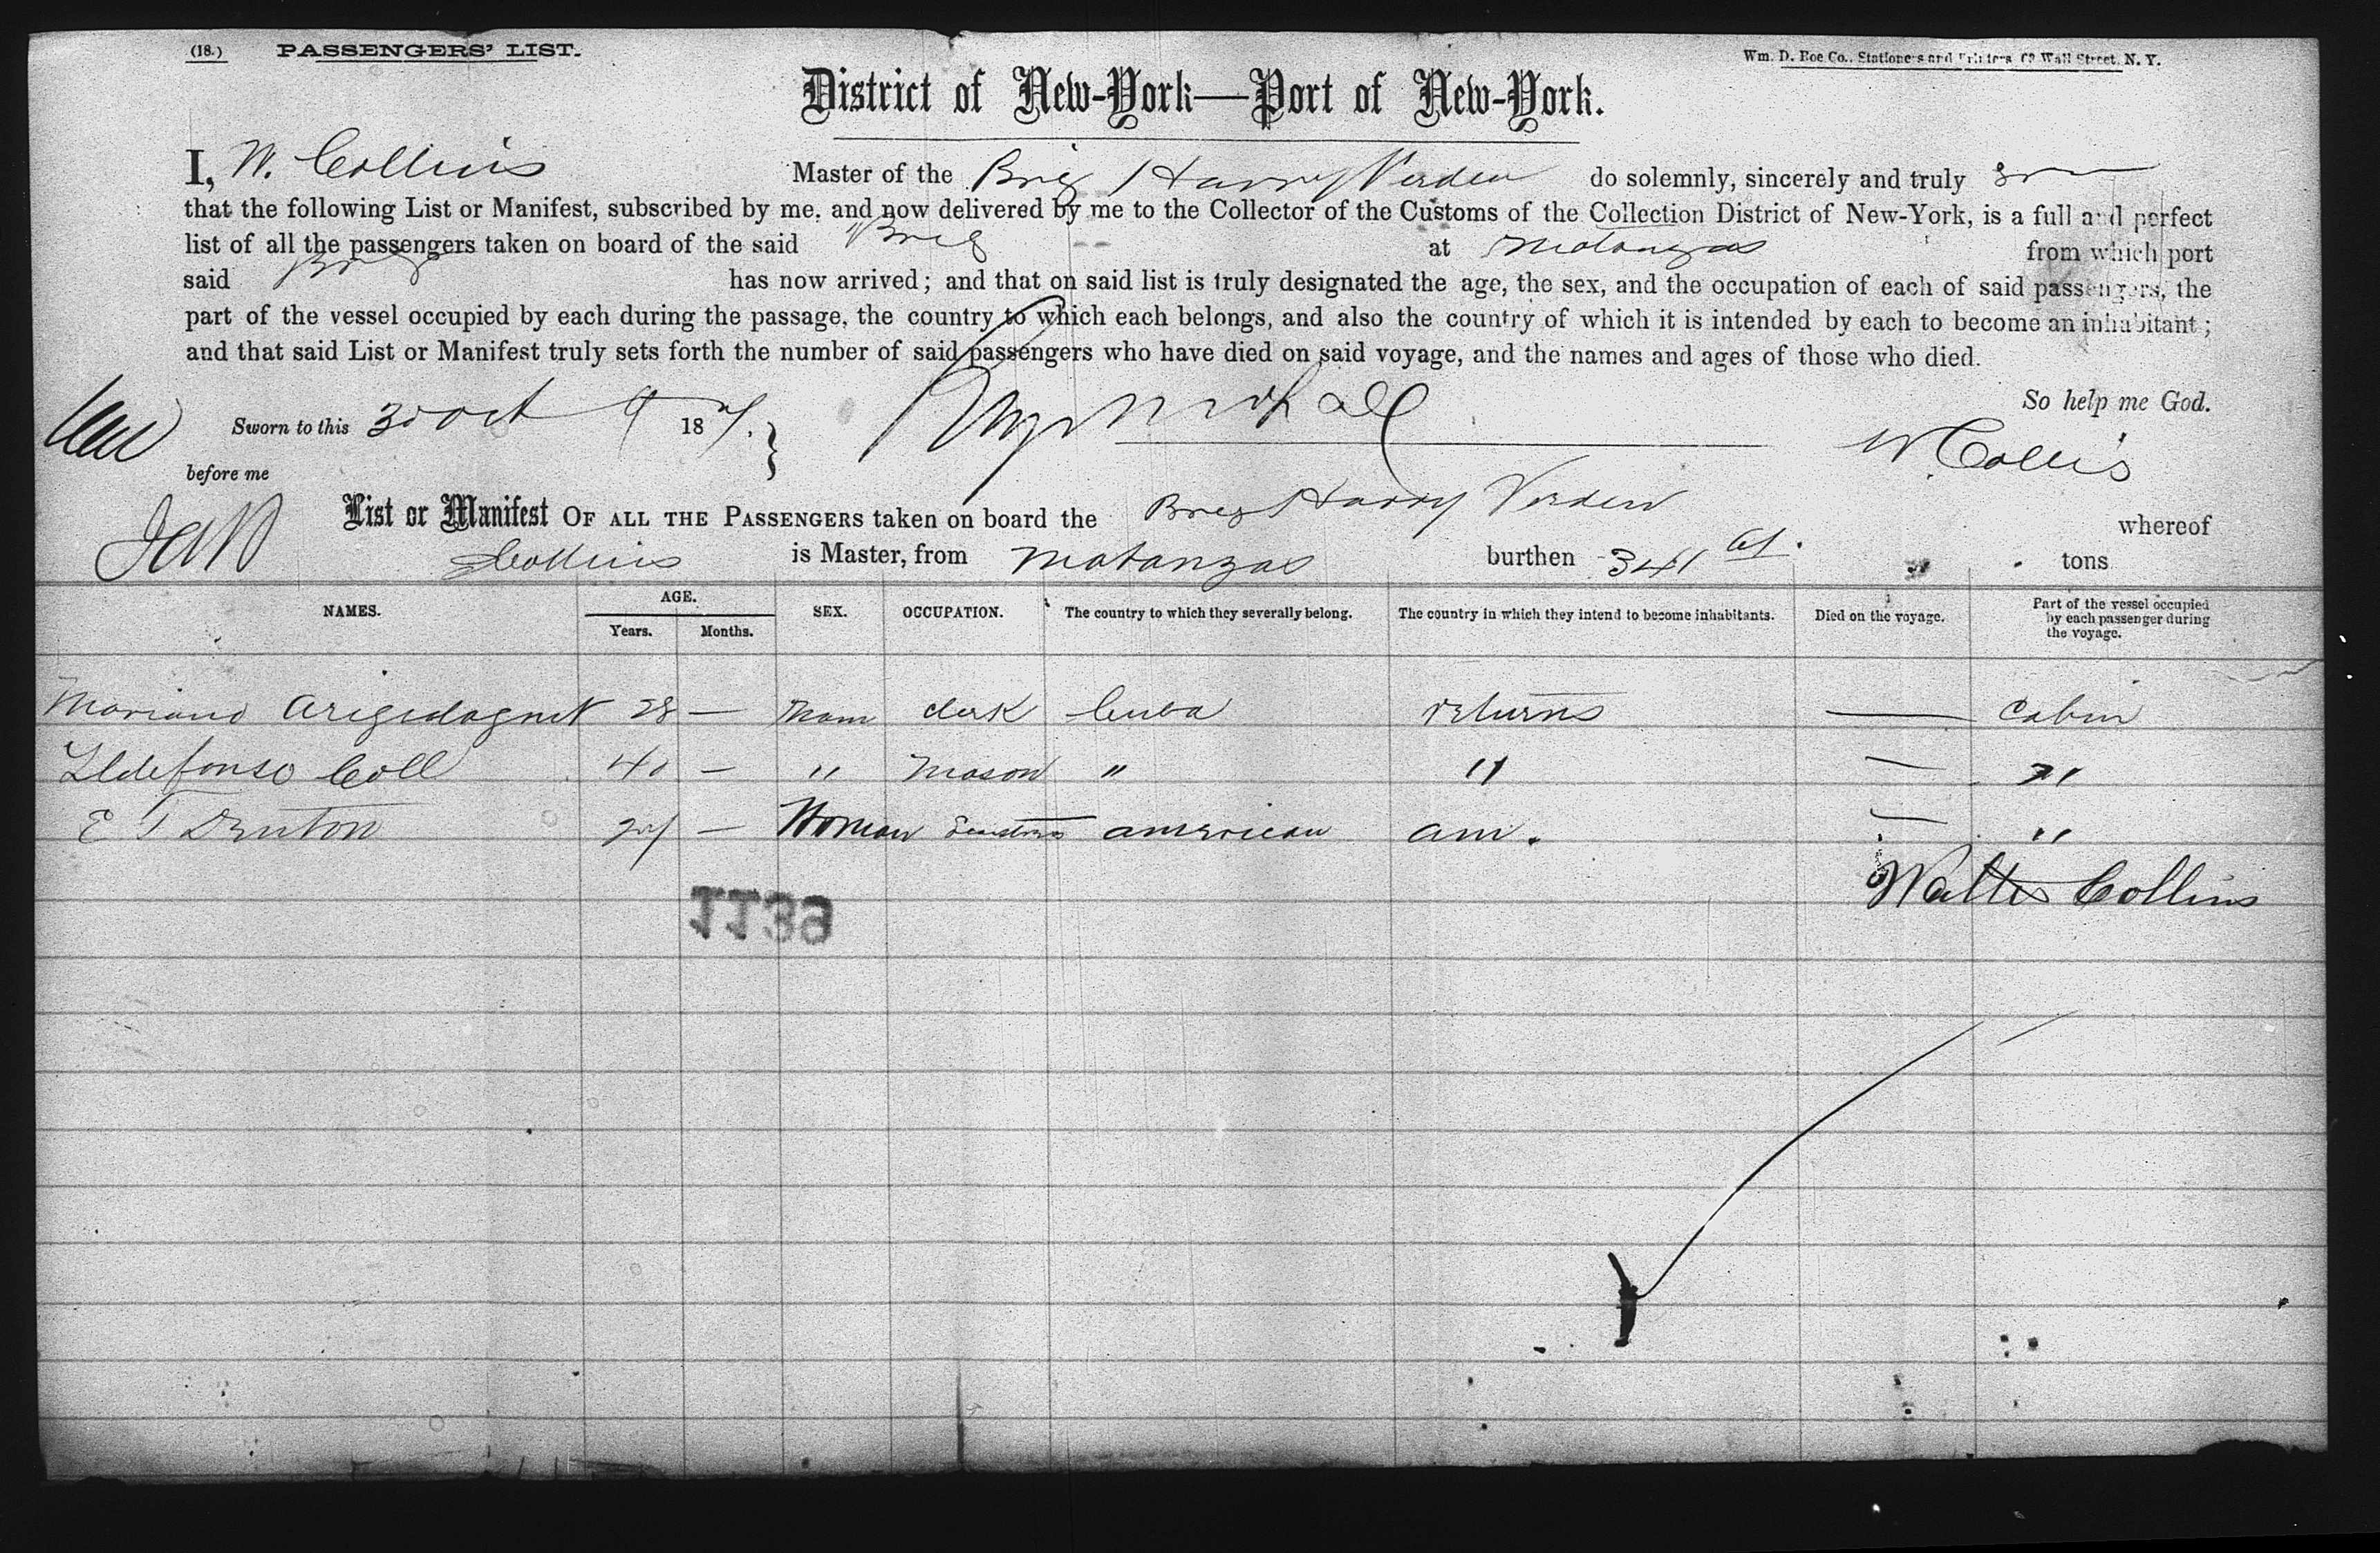 (18.) PASSENGERS' LIST.
Wm. D. Roe Co., Stationers and Printers 69 Wall Street, N. Y.
District of New-York—Port of New-York.
I, W. Collins Master of the Brig Harry Verden do solemnly, sincerely and truly
that the following List or Manifest, subscribed by me, and now delivered by me to the Collector of the Customs of the Collection District of New-York, is a full and perfect
list of all the passengers taken on board of the said Brig at Matanzas from which port
said Brig has now arrived; and that on said list is truly designated the age, the sex, and the occupation of each of said passengers, the
part of the vessel occupied by each during the passage, the country to which each belongs, and also the country of which it is intended by each to become an inhabitant;
and that said List or Manifest truly sets forth the number of said passengers who have died on said voyage, and the names and ages of those who died.
So help me God.
Sworn to this 30 Oct 18
before me
W Collins
List or Manifest OF ALL THE PASSENGERS taken on board the Brig Harry Verden whereof
Collins is Master, from Matanzas burthen 341 tons
NAMES. AGE. Years. Months. SEX. OCCUPATION. The country to which they severally belong. The country in which they intend to become inhabitants. Died on the voyage. Part of the vessel occupied by each passenger during the voyage.
Mariano 28 — Man Clerk Cuba returns — Cabin
Ildefonso Coll 40 — " Mason " " — "
E T Denton — Woman american am. — "
Walter Collins
1139